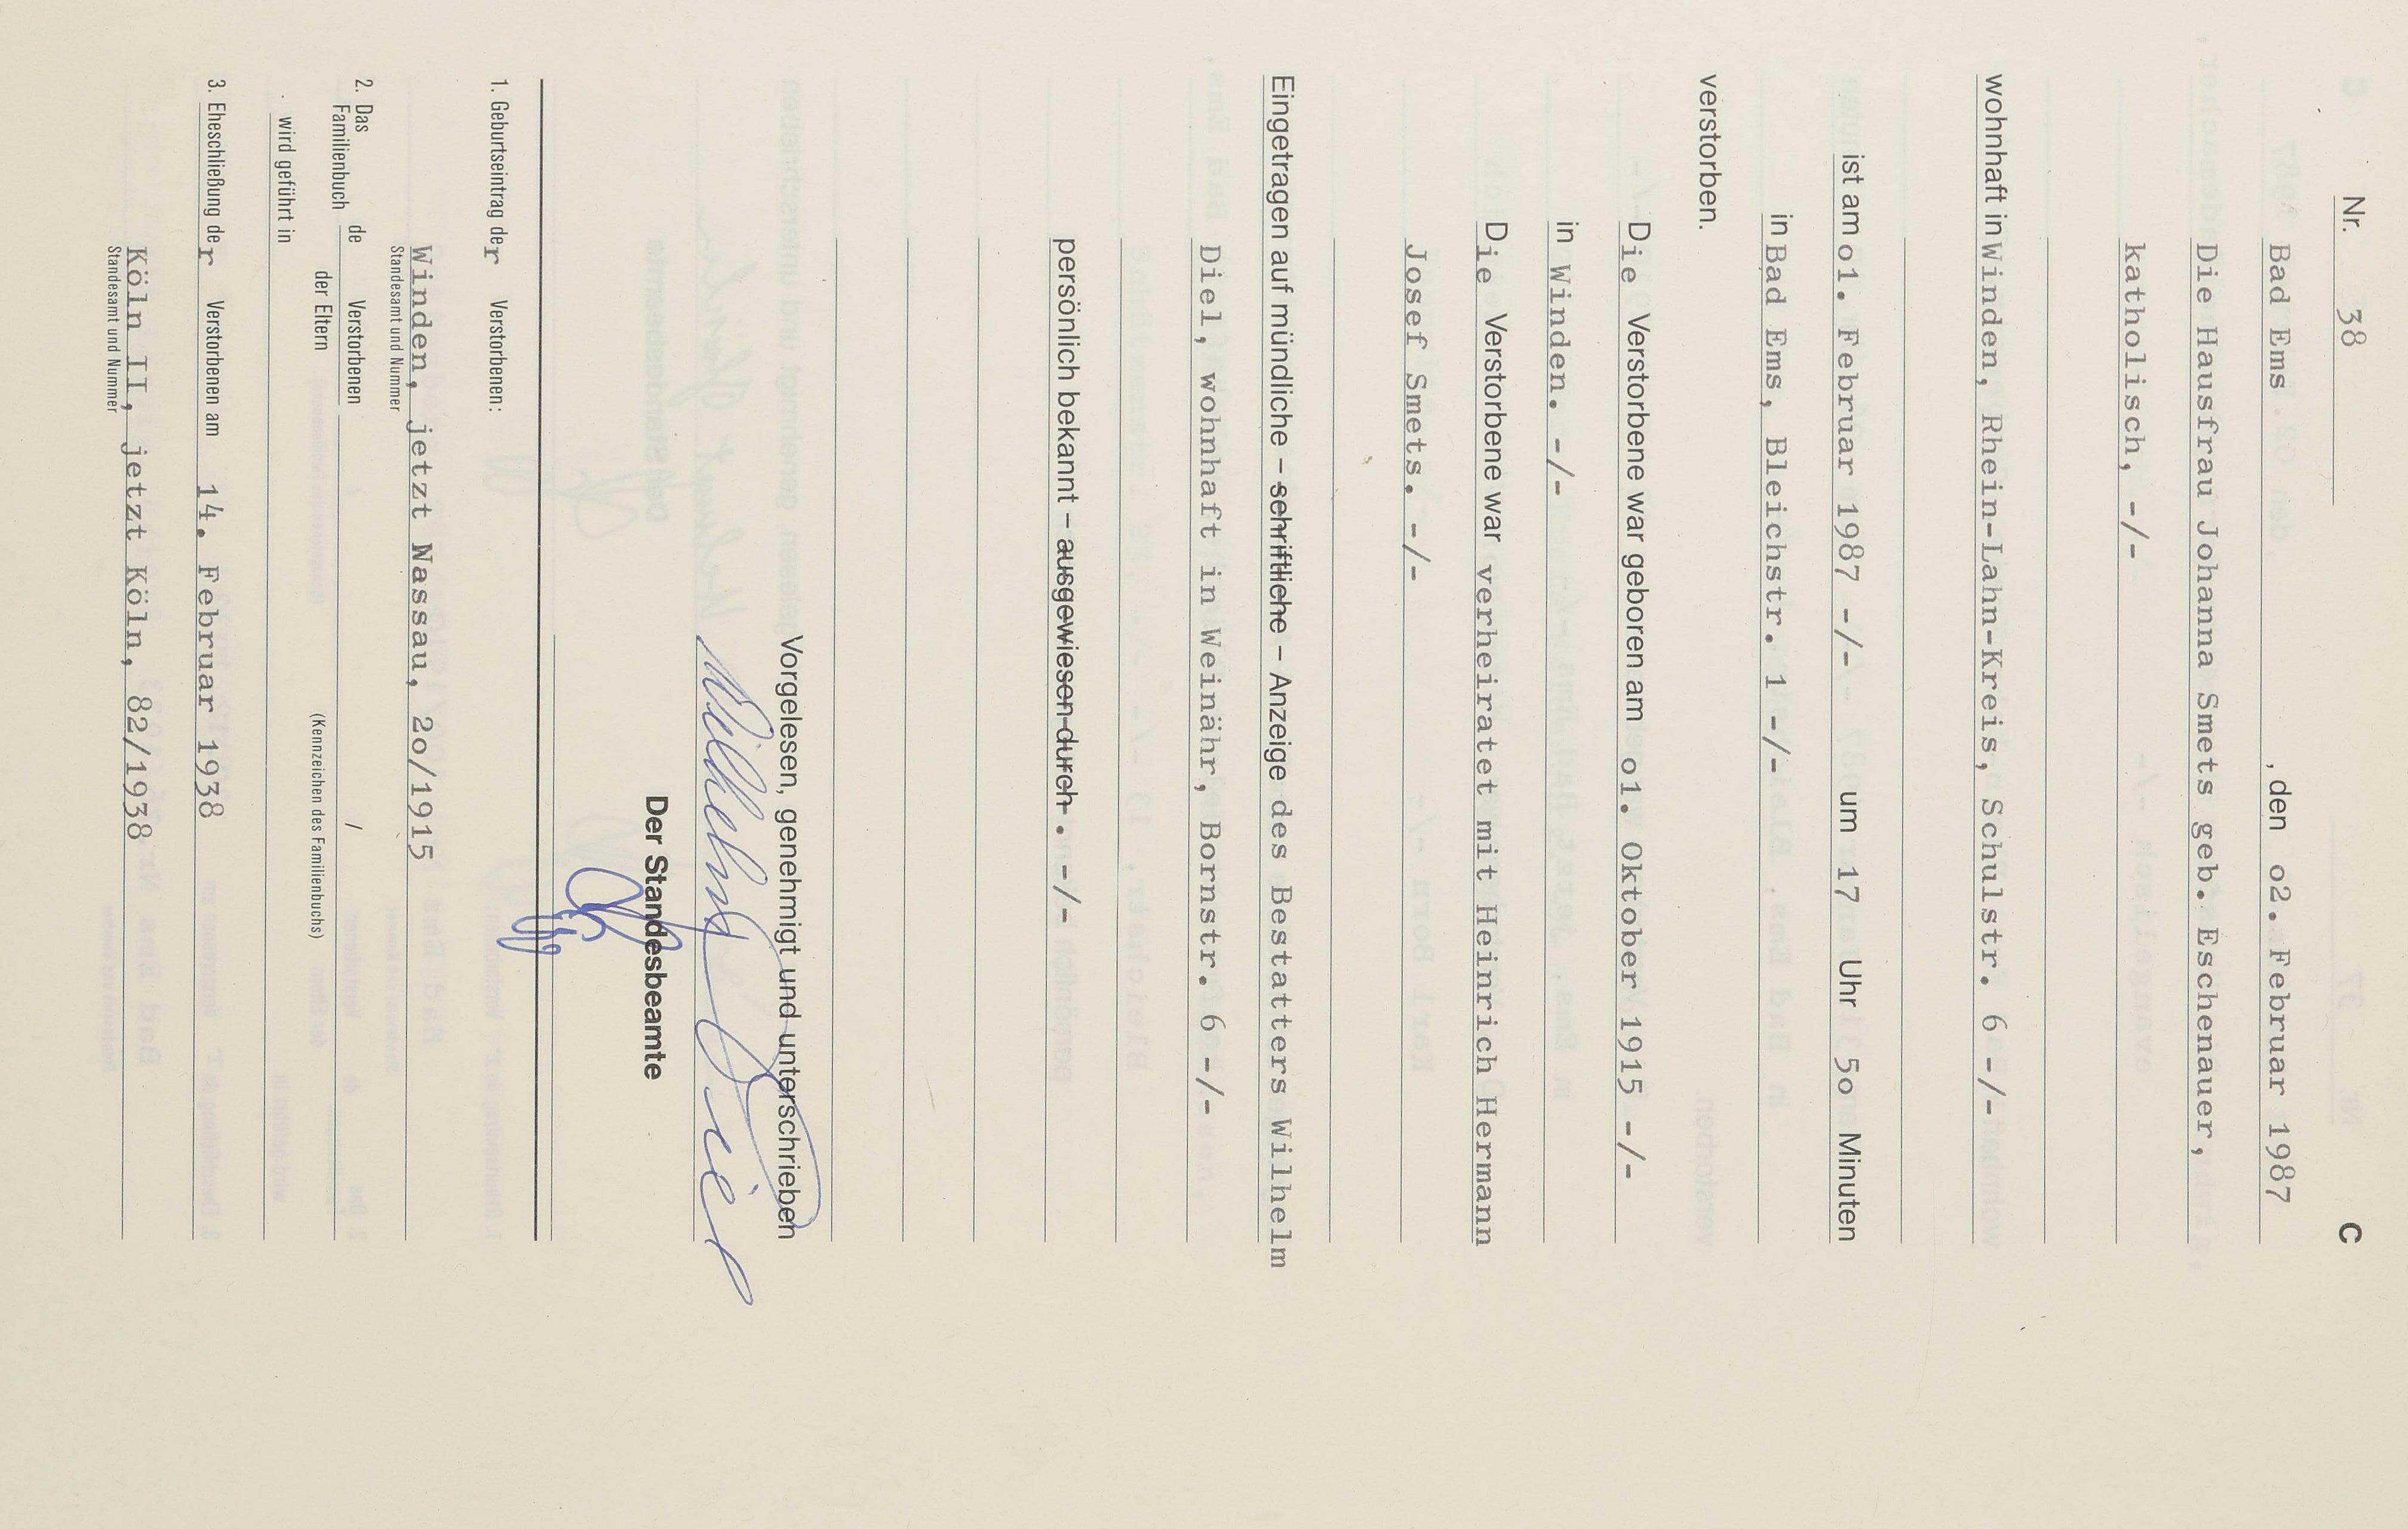 Nr. 38 C
Bad Ems , den o2. Februar 1987
Die Hausfrau Johanna Smets geb. Eschenauer,
katholisch, -/-
wohnhaft in Winden, Rhein-Lahn-Kreis, Schulstr. 6 -/-
ist am o1. Februar 1987 -/- um 17 Uhr 5o Minuten
in Bad Ems, Bleichstr. 1 -/-
verstorben.
Die Verstorbene war geboren am o1. Oktober 1915 -/-
in Winden. -/-
Die Verstorbene war verheiratet mit Heinrich Hermann
Josef Smets. -/-
Eingetragen auf mündliche – schriftliche – Anzeige des Bestatters Wilhelm
Diel, wohnhaft in Weinähr, Bornstr. 6 -/-
persönlich bekannt – ausgewiesen durch . -/-
Vorgelesen, genehmigt und unterschrieben
Wilhelm Diel
Der Standesbeamte
1. Geburtseintrag der Verstorbenen:
Winden, jetzt Nassau, 2o/1915
Standesamt und Nummer
2. Das Familienbuch de Verstorbenen /
der Eltern (Kennzeichen des Familienbuchs)
wird geführt in
3. Eheschließung der Verstorbenen am 14. Februar 1938
Köln II, jetzt Köln, 82/1938
Standesamt und Nummer